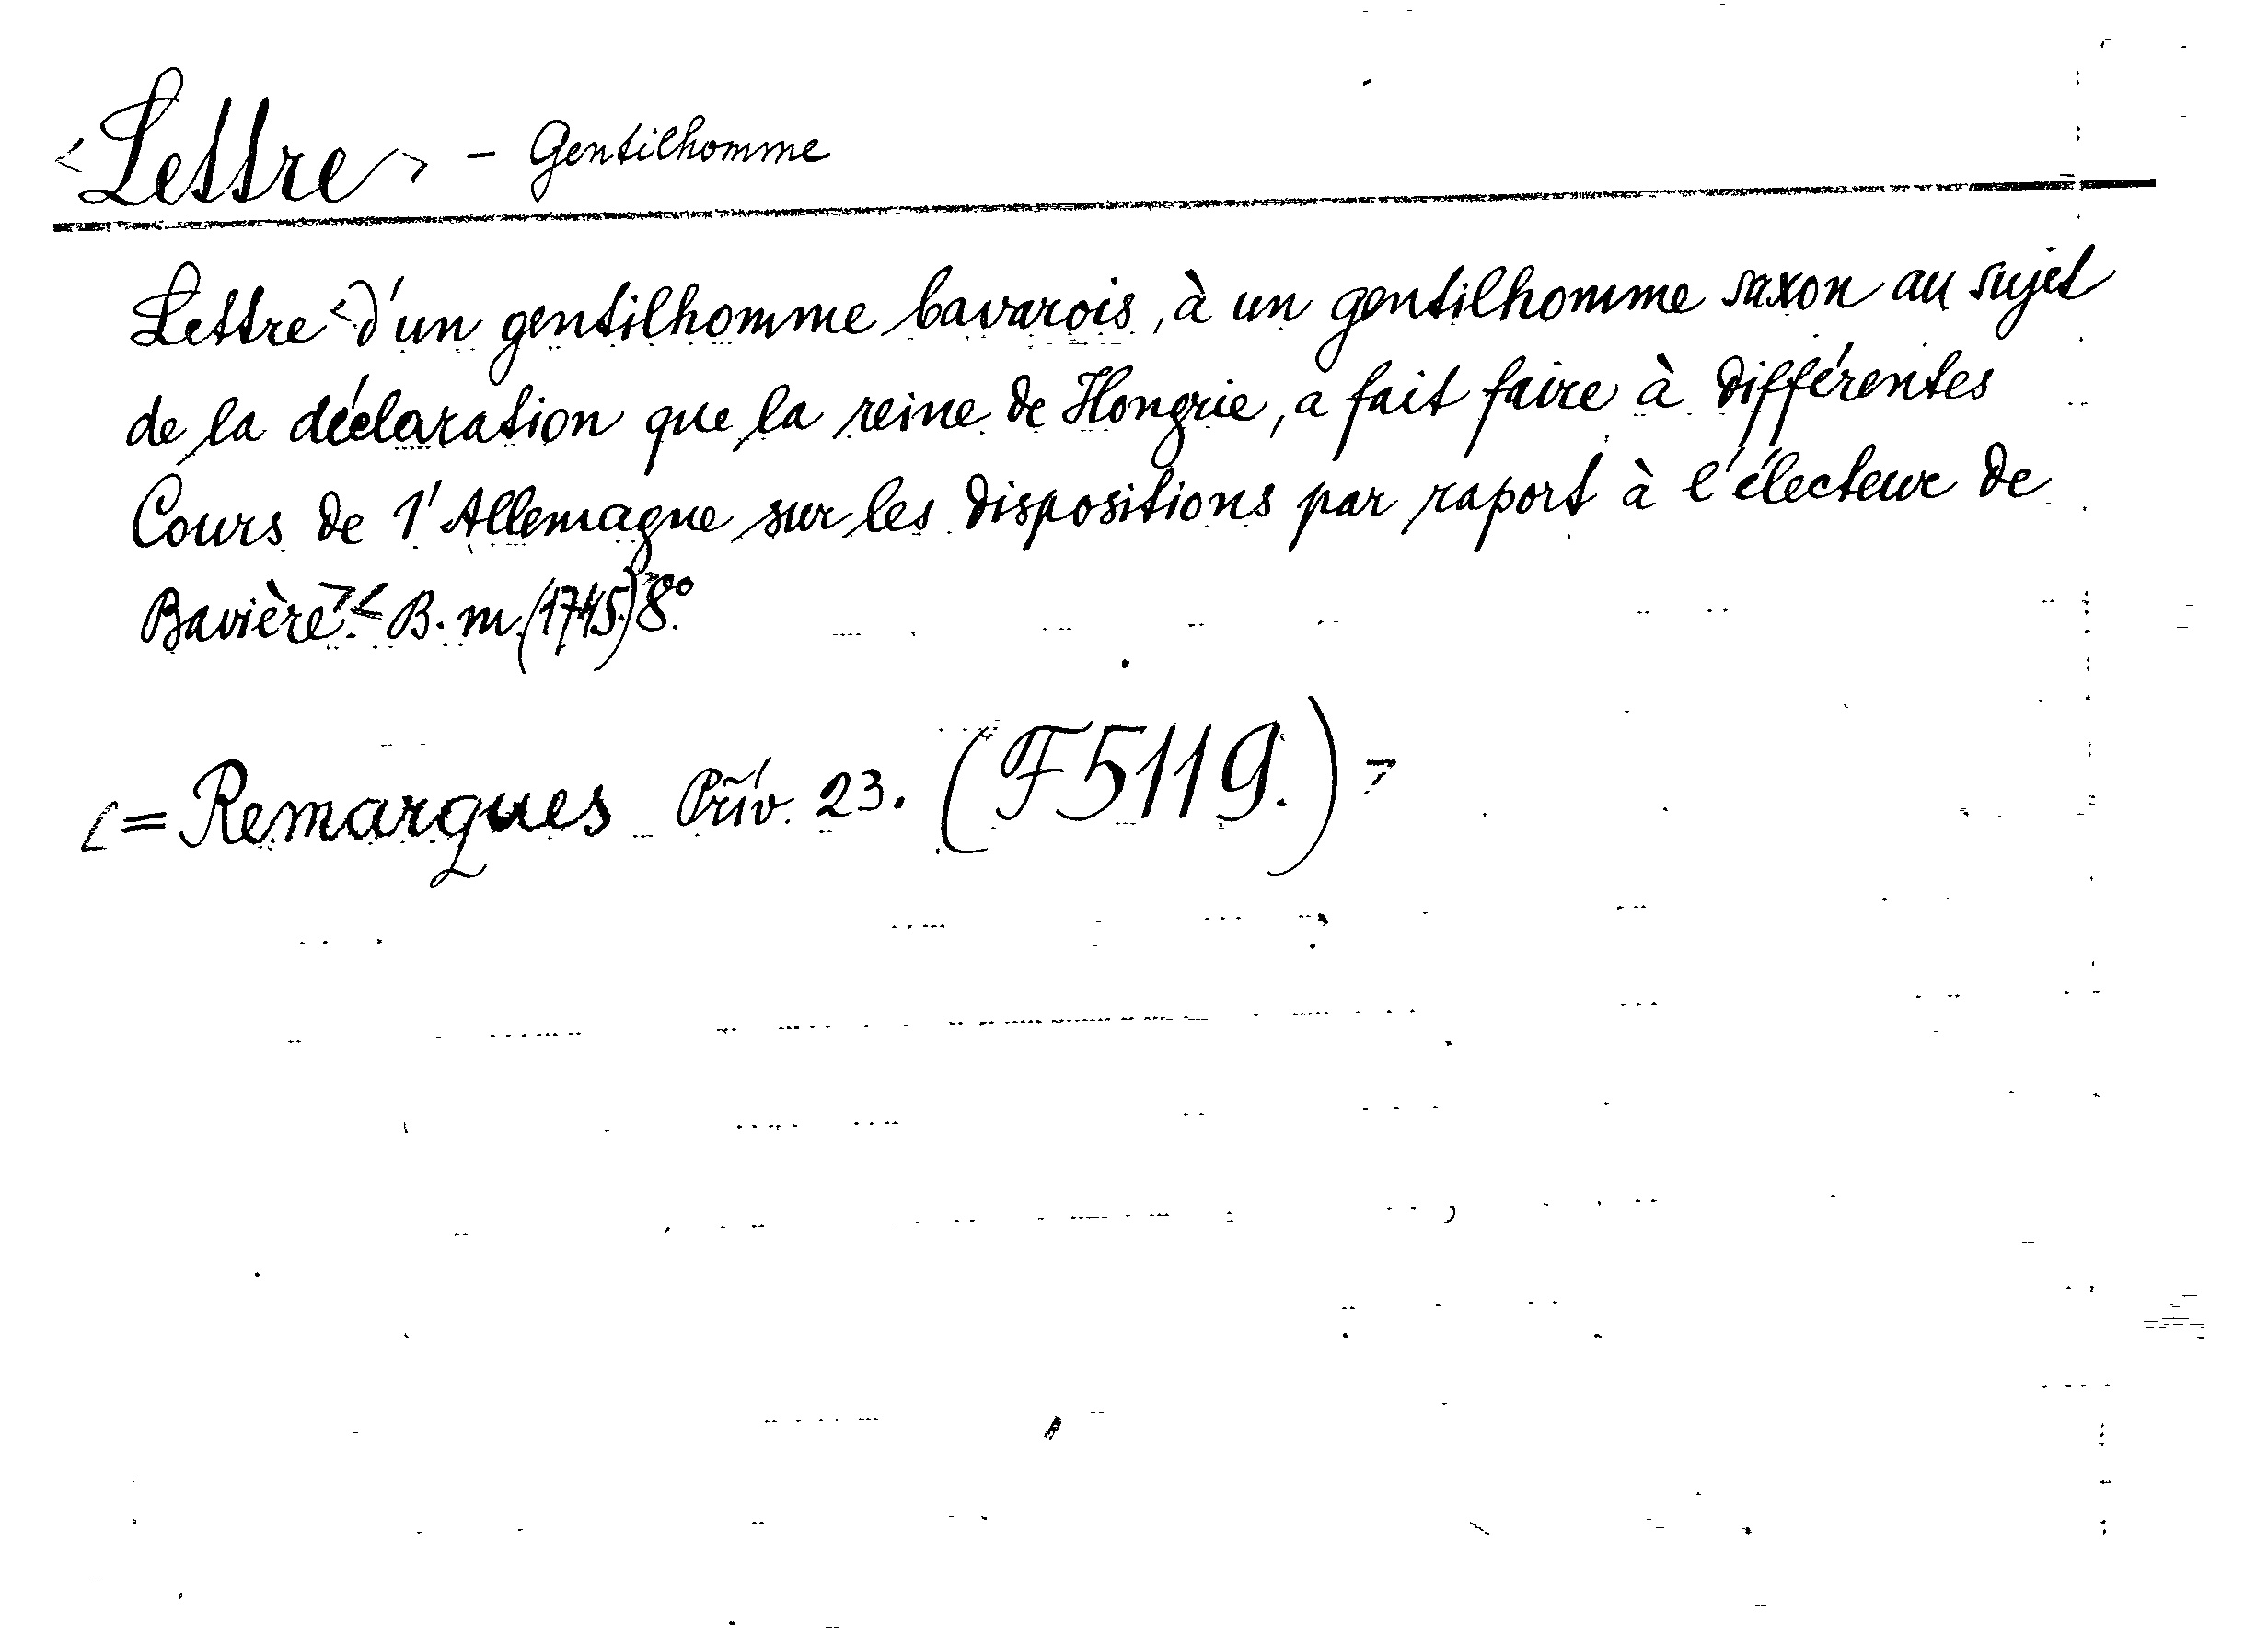 <Lettre> - Gentilhomme
Lettre <d'un gentilhomme bavarois, à un gentilhomme saxon au sujet
de la déclaration que la reine de Hongrie, a fait faire à différentes
Cours de l'Allemagne sur les dispositions par raport à l'électeur de
Bavière.> < B. m. (1745.) 8°.
<= Remarques Priv. 23. (F 5119.) >